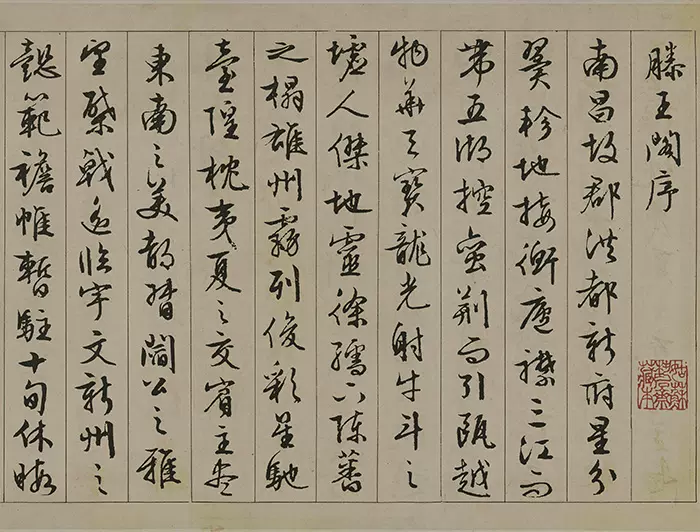 滕王閣序
南昌故郡洪都新府星分
翼軫地接衡廬襟三江而
帶五湖控蠻荆而引甌越
物華天寶龍光射牛斗之
墟人傑地靈徐孺下陳蕃
之榻雄州霧列俊彩星馳
臺隍枕夷夏之交賓主盡
東南之美都督閻公之雅
望棨戟遥臨宇文新州之
懿範襜帷暫駐十旬休暇